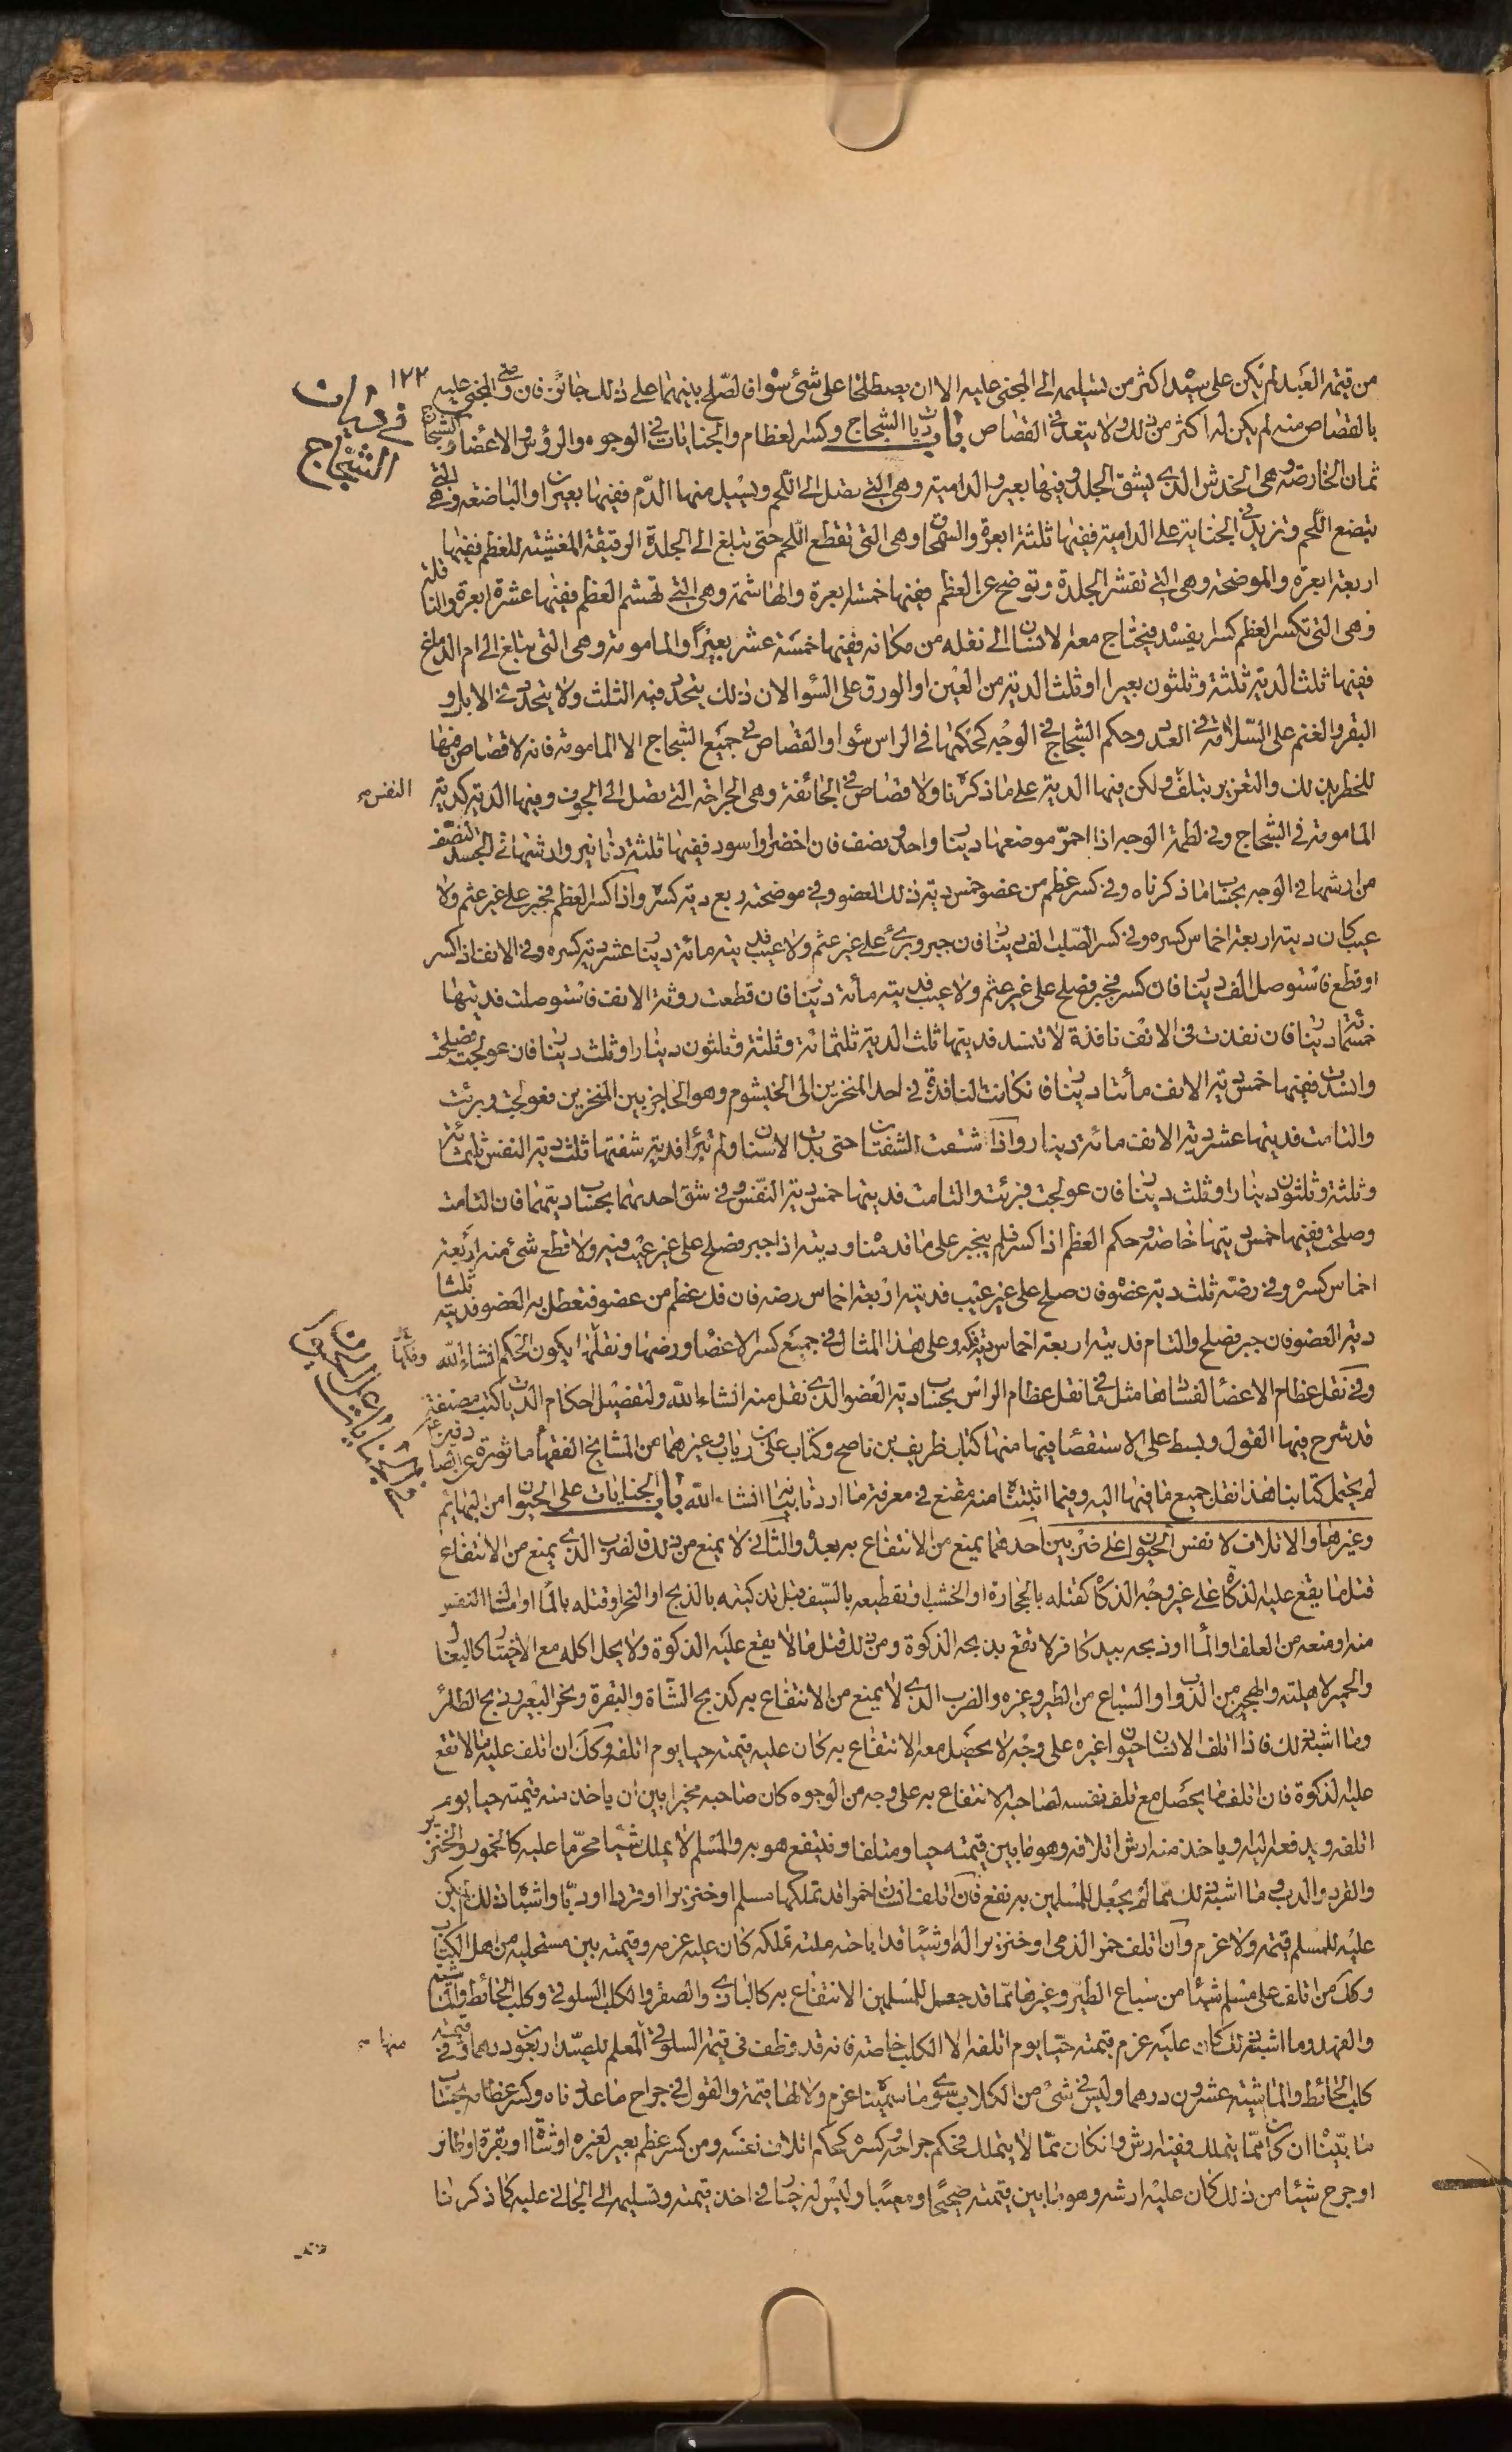 ١٢٢
في ديات الشجاج
من قيمة العبد لم يكن على سيده اكثر من تسليمه الى المجنى عليه الا ان يصطلحا على شئ سوا فالصلح بينهما على ذلك جائز فان رضى المجنى عليه
بالقصاص منه لم يكن له اكثر من ذلك ولا يتعد فى القصاص باب ديات الشجاج وكسر العظام والجنايات فى الوجوه والرؤس والاعضا والشجاج
ثمان الخارصة وهى الخدش الذى يشق الجلد وفيها بعير والدامية وهى التى تصل الى اللحم ويسيل منها الدم ففيها بعيران والباضعة وهى التى
تبضع اللحم وتزيد فى الجناية على الدامية ففيها ثلثة ابعرة والسمحاق وهى التى تقطع اللحم حتى تبلغ الى الجلدة الرقيقة المغشية للعظم ففيها
اربعة ابعرة والموضحة وهى التى تقشر الجلدة وتوضح عن العظم ففيها خمسة ابعرة والهاشمة وهى التى تهشم العظم ففيها عشرة ابعرة والناقلة
وهى التى تكسر العظم كسرا يفسده فيحتاج معه الانسان الى نقله من مكانه ففيها خمسة عشر بعيراً والمامومة وهى التى تبلغ الى ام الدماغ
ففيها ثلث الدية ثلثة وثلثون بعيرا او ثلث الدية من العين او الورق على السوا لان ذلك يتحدد فيه الثلث ولا يتحدد فى الابل و
البقر والغنم على السلامة فى العدد وحكم الشجاج فى الوجه كحكمها فى الراس سوا والقصاص فى جميع الشجاج الا المامومة فانه لا قصاص فيها
للخطر بذلك والتغرير بتلف النفس ولكن فيها الدية على ما ذكرنا ولا قصاص فى الجائفة وهى الجراحة التى تصل الى الجوف وفيها الدية كدية
المامومة فى الشجاج وفى لطمة الوجه اذا احمر موضعها دينار واحد ونصف فان اخضر او اسود ففيها ثلثة دنانير وارشها فى الجسد النصف
من ارشها فى الوجه بحساب ما ذكرناه وفى كسر عظم من عضو خمس دية ذلك العضو وفى موضحته ربع دية كسره واذا كسر العظم فجبر على غير عثم ولا
عيب كان ديته اربعة اخماس كسره وفى كسر الصلب الف دينار فان جبر وبرئ على غير عثم ولا عيب فديته مائة دينار عشر دية كسره وفى الانف اذا كسر
او قطع فاستوصل الف دينار فان كسر فجبر فصلح على غير عثم ولا عيب فديته مائة دينار فان قطعت روثة الانف فاستوصلت فديتها
خمسمائة دينار فان نفذت فى الانف نافذة لا تنسد فديتها ثلث الدية ثلثمائة وثلثة وثلثون دينارا وثلث دينار فان عولجت فصلحت
وانسدت ففيها خمس دية الانف مأتا دينار فان كانت النافذة فى احد المنخرين الى الخيشوم وهو الحاجز بين المنخرين فعولجت وبرئت
والتامت فديتها عشر دية الانف مائة دينار واذا شقت الشفتان حتى بدت الاسنان ولم تبرا فدية شفتها ثلث دية النفس ثلثمائة
وثلثة وثلثون دينارا وثلث دينار فان عولجت فبرئت والتامت فديتها خمس دية النفس وفى شق احديهما بحساب ديتهما فان التامت
وصلحت ففيها خمس ديتها خاصة وحكم العظم اذا كسر فلم ينجبر على ما قدمنا وديته اذا جبر فصلح على غير عيب فيه ولا قطع شئ منه اربعة
اخماس كسره وفى رضته ثلث دية عضوه فان صلح على غير عيب فديته اربعة اخماس رضه فان فك عظم من عضو فتعطل به العضو فديته ثلثا
دية العضو فان جبر فصلح والتام فديته اربعة اخماس دية فكه وعلى هذا المثال فى جميع كسر الاعضا ورضها ونقلها وفكها يكون الحكم انشاء الله
وفى نقل عظام الاعضا لفسادها مثل ما فى نقل عظام الراس بحساب دية العضو الذى نقل منه انشاء الله ولتفصيل احكام الديات كتب مصنفة
قد شرح فيها القول وبسط على الاستقصا فيها منها كتاب ظريف بن ناصح وكتاب على بن رئاب وغيرهما من المشايخ الفقها ماثورة عن
لم يحتمل كتابنا هذا نقل جميع ما فيها اليه وفيما اثبتناه منه مقنع فى معرفة ما اردنا بيانه انشاء الله باب الجنايات على الحيوان من البهائم
وغيرها والاتلاف لانفس الحيوان على ضربين احدهما يمنع من الانتفاع به بعده والثانى لا يمنع من ذلك فالضرب الذى يمنع من الانتفاع
قتل ما يقع عليه الذكاة على غير وجه الذكاة كقتله بالحجارة او الخشب او تقطيعه بالسيف قبل تذكيته بالذبح او النحر او قتله بالما او امساك النفس
منه او منعه من العلف او الما او ذبحه بيد كافر لا تقع بذبحه الذكوة ومن ذلك قتل ما لا يقع عليه الذكوة ولا يحل اكله مع الاختيار كالبغال
والحمير الاهلية والهجين من الدواب والسباع من الطير وغيره والضرب الذى لا يمنع من الانتفاع به كذبح الشاة والبقرة ونحر البعير وذبح الطائر
وما اشبه ذلك فاذا اتلف الانسان حيوان غيره على وجه لا يحصل معه الانتفاع به كان عليه قيمته حيا يوم اتلفه وكك ان اتلف عليه ما لا تقع
عليه الذكوة فان اتلف ما يحصل مع تلف نفسه لصاحبه الانتفاع به على وجه من الوجوه كان صاحبه مخيرا بين ان ياخذ منه قيمته حيا يوم
اتلفه ويدفعه اليه وياخذ منه ارش اتلافه وهو ما بين قيمته حيا ومتلفا وينتفع هو به والمسلم لا يملك شيئا محرما عليه كالخمور والخنزير
والقرد والدب وما اشبه ذلك مما لم يجعل للمسلمين به نفع فان اتلف انسان خمرا قد تملكها مسلم او خنزيرا او قردا او دبا واشباه ذلك لم يكن
عليه للمسلم قيمته ولا غرم وان اتلف خمر الذمى او خنزيرا له او شيئا قد اباحته ملته تملكه كان عليه غرمه وقيمته بين مستحليه من اهل الكتاب
وكك من اتلف على مسلم شيئا من سباع الطير وغيرها مما قد جعل للمسلمين الانتفاع به كالبازى والصقر والكلب السلوقى وكلب الحائط والماشية
والفهد وما اشبه ذلك كان عليه غرم قيمته حيا يوم اتلفه الا الكلب خاصة فانه قد وظف فى قيمة السلوقى المعلم للصيد اربعون درهما وفى قيمة
كلب الحائط والماشية عشرون درهما وليس فى شئ من الكلاب سوى ما سميناه غرم ولا لها قيمة والقول فى جراح ما عددناه وكسر عظامه بحساب
ما بيناه ان كان مما يتملك ففيه ارش وان كان مما لا يتملك فحكم جراحه وكسره كحكم اتلاف نفسه ومن كسر عظم بعير لغيره او شاة او بقرة او طائر
او جرح شيئا من ذلك كان عليه ارشه وهو ما بين قيمته صحيحا ومعيبا وليس له خيار فى اخذ قيمته وتسليمه الى الجانى عليه كما ذكرنا
النفس
وفكها
منها